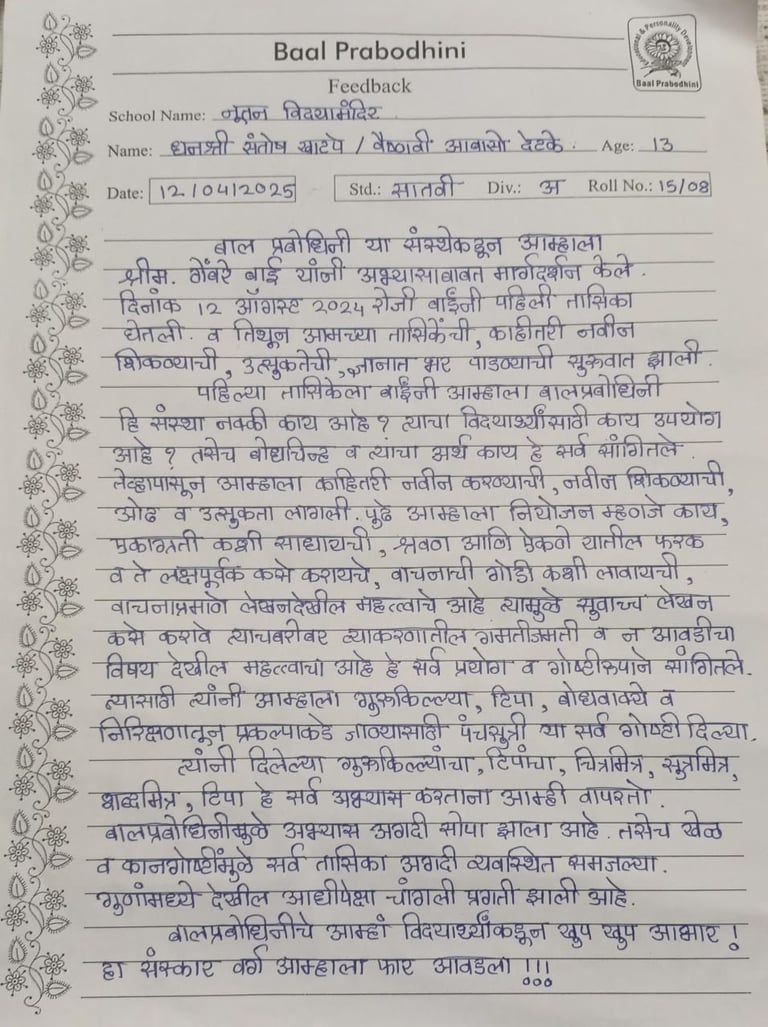 Baal Prabodhini
Educational & Personality Development
Baal Prabodhini
Feedback
School Name: नूतन विद्यामंदिर
Name: धनश्री संतोष खाटपे / वैष्णवी आबासो देटके. Age: 13
Date: 12/04/2025 Std.: सातवी Div.: अ Roll No.: 15/08
बाल प्रबोधिनी या संस्थेकडून आम्हाला
श्रीम. गेंबरे बाई यांनी अभ्यासाबाबत मार्गदर्शन केले.
दिनांक 12 ऑगस्ट 2024 रोजी बाईंनी पहिली तासिका
घेतली. व तिथून आमच्या तासिकेंची, काहीतरी नवीन
शिकण्याची, उत्सुकतेची, ज्ञानात भर पाडण्याची सुरुवात झाली.
पहिल्या तासिकेला बाईंनी आम्हाला बालप्रबोधिनी
हि संस्था नक्की काय आहे? त्याचा विद्यार्थ्यांसाठी काय उपयोग
आहे? तसेच बोधचिन्ह व त्यांचा अर्थ काय हे सर्व सांगितले.
तेव्हापासून आम्हाला काहितरी नवीन करण्याची, नवीन शिकण्याची,
ओढ व उत्सुकता लागली. पुढे आम्हाला नियोजन म्हणजे काय,
एकाग्रता कशी साधायची, श्रवण आणि ऐकणे यातील फरक
व ते लक्षपूर्वक कसे करायचे, वाचनाची गोडी कशी लावायची,
वाचनाप्रमाणे लेखनदेखील महत्त्वाचे आहे त्यामुळे सुवाच्य लेखन
कसे करावे त्याचबरोबर व्याकरणातील गंमतीजमती व न आवडीचा
विषय देखील महत्त्वाचा आहे हे सर्व प्रयोग व गोष्टीरूपाने सांगितले.
त्यासाठी त्यांनी आम्हाला गुरुकिल्ल्या, टिपा, बोधवाक्ये व
निरिक्षणातून प्रकल्पाकडे जाण्यासाठी पंचसुत्री या सर्व गोष्टी दिल्या.
त्यांनी दिलेल्या गुरुकिल्ल्यांचा, टिपांचा, चित्रमित्र, सूत्रमित्र,
शब्दमित्र, टिपा हे सर्व अभ्यास करताना आम्ही वापरतो.
बालप्रबोधिनीमुळे अभ्यास अगदी सोपा झाला आहे. तसेच खेळ
व कानगोष्टींमुळे सर्व तासिका अगदी व्यवस्थित समजल्या.
गुणांमध्ये देखील आधीपेक्षा चांगली प्रगती झाली आहे.
बालप्रबोधिनीचे आम्हां विद्यार्थ्यांकडून खुप खुप आभार!
हा संस्कार वर्ग आम्हाला फार आवडला!!!